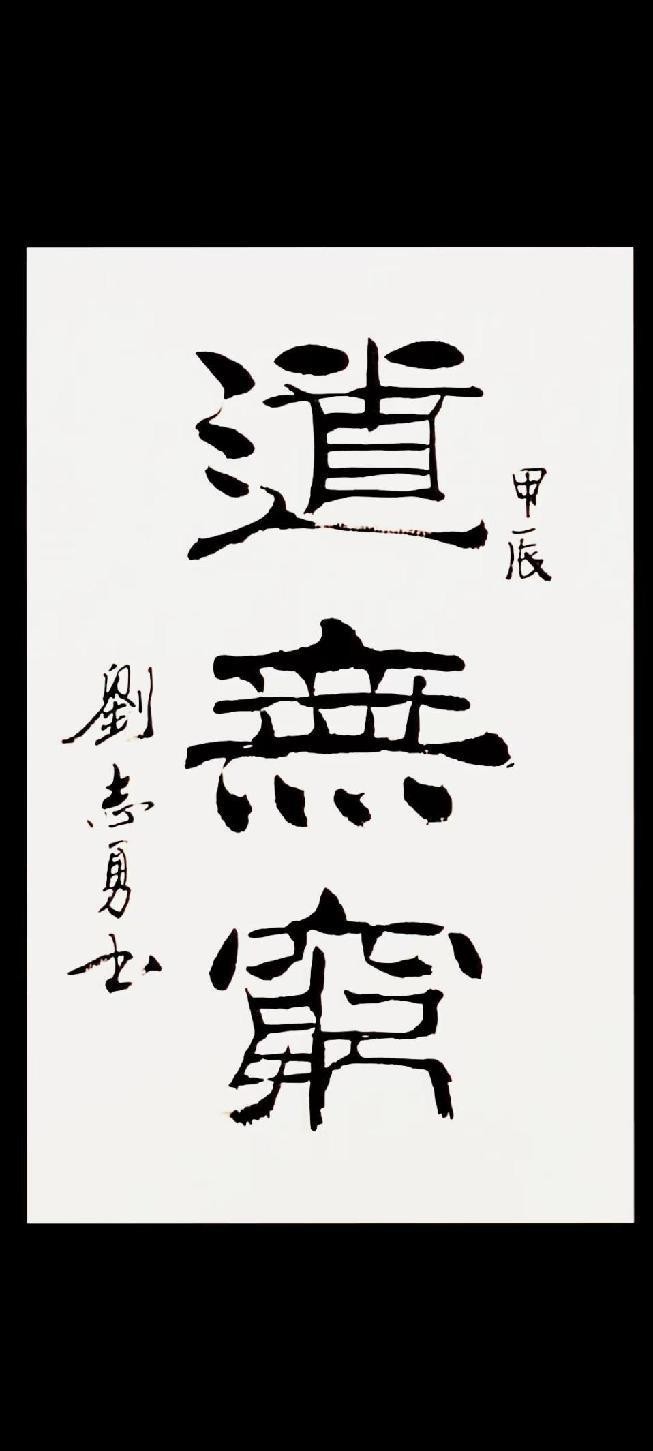 甲辰
道無窮
劉志勇书